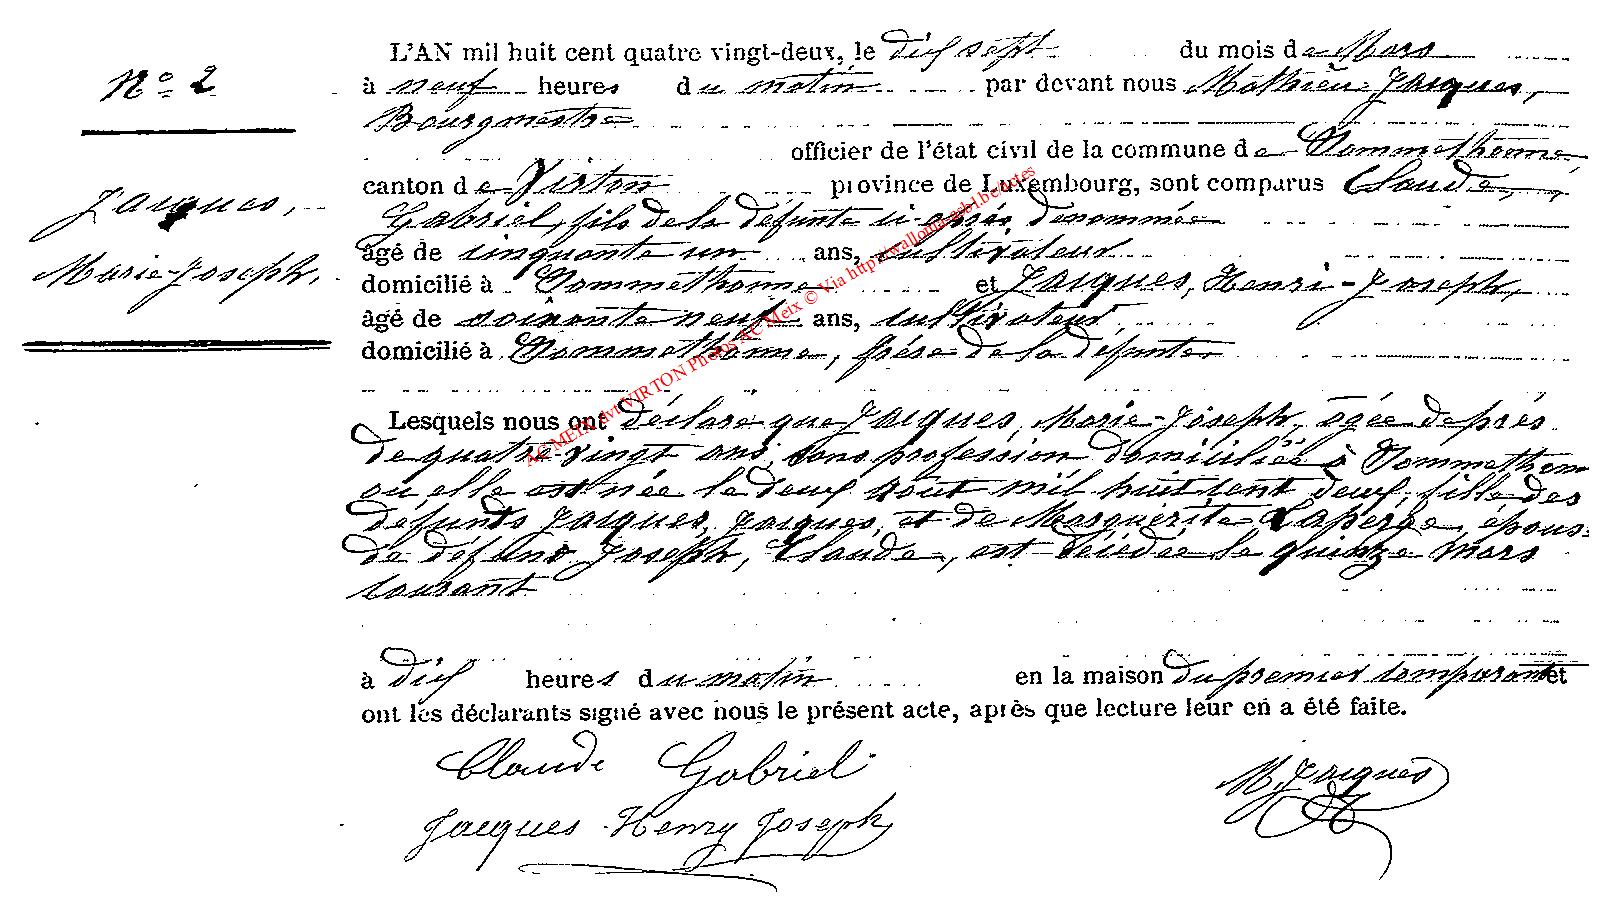 L'AN mil huit cent quatre vingt-deux, le dix sept du mois de Mars
N° 2
à neuf heures du matin par devant nous Mathieu Jacques,
Bourgmestre
officier de l'état civil de la commune de Sommethonne
canton de Virton province de Luxembourg, sont comparus Claude,
Jacques,
Marie-Joseph.
Gabriel, fils de la défunte ci-après dénommée
âgé de cinquante un ans, cultivateur
domicilié à Sommethonne et Jacques, Henri-Joseph,
âgé de soixante neuf ans, cultivateur
domicilié à Sommethonne, frère de la défunte
Lesquels nous ont déclaré que Jacques, Marie-Joseph, âgée de près
de quatre-vingt ans, sans profession domiciliée à Sommethonn
qu'elle est née le deux août mil huit cent deux, fille des
défunts Jacques, Jacques, et de Marguérite Laperge, épous:
de défunt Joseph, Claude, est décédée le quinze mars
courant
à dix heures du matin en la maison du premier comparant et
ont les déclarants signé avec nous le présent acte, après que lecture leur en a été faite.
Claude Gabriel
M. Jacques
Jacques Henry Joseph
AC MEIX dvt VIRTON Photos AC Meix © Via http://wallonia.arb1.be/actes